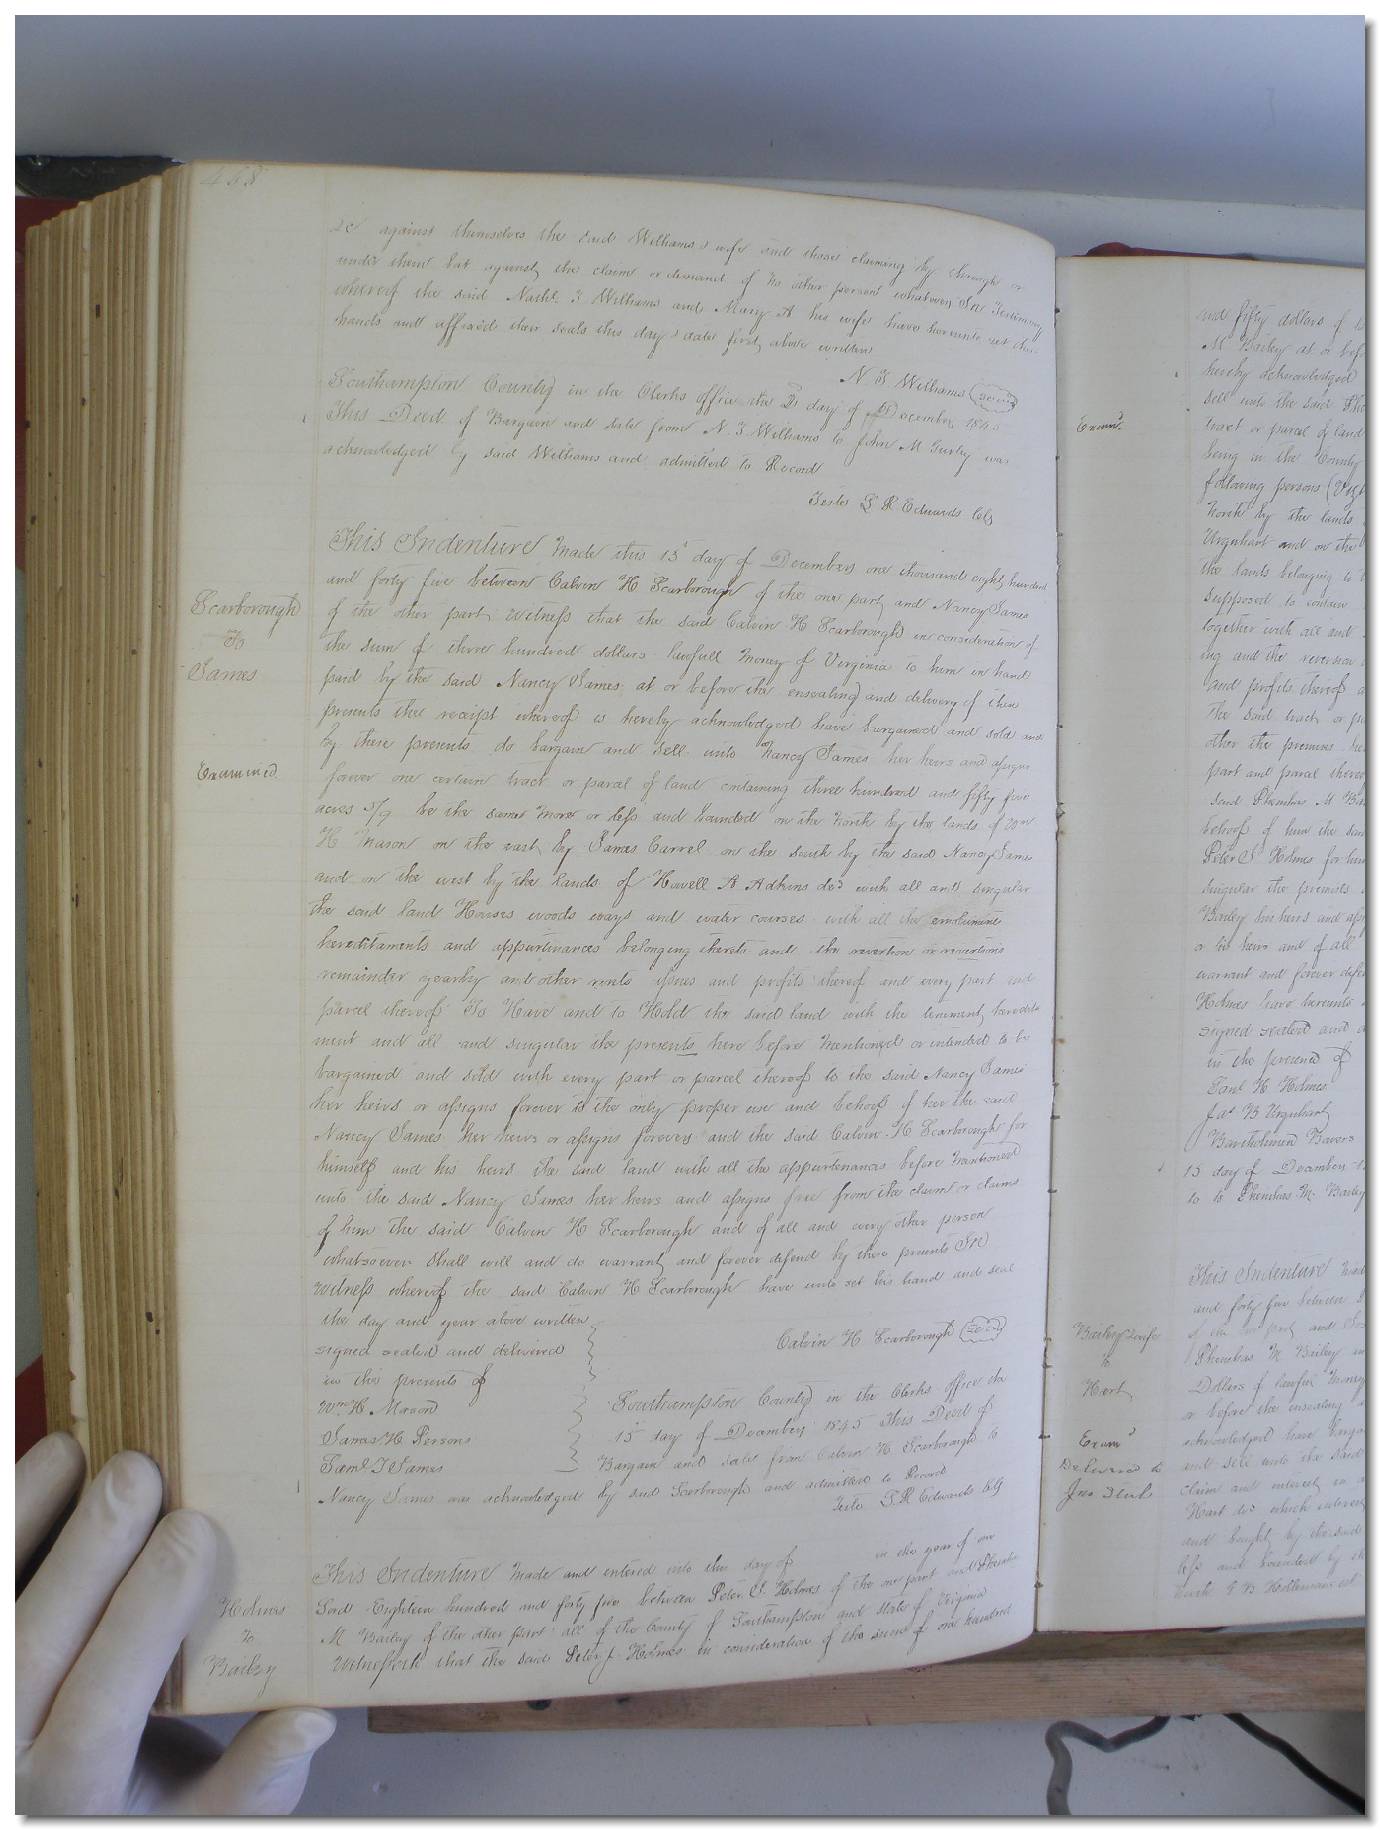 468
&c against themselves the said Williams & wife and those claiming by through or
under them but against the claim or demand of no other person whatever In Testimony
whereof the said Nathl. T Williams and Mary A his wife have hereunto set their
hands and affixed their seals this day & date first above written
N T Williams (Seal)
Southampton County in the Clerks office the day of December 1845
This Deed of Bargain and sale from N. T. Williams to John M Gurley was
acknowledged by said Williams and admitted to Record
Teste L R Edwards Clk
This Indenture Made this 15th day of December one thousand eight hundred
and forty five between Calvin H Scarborough of the one part and Nancy James
Scarborough
of the other part Witness that the said Calvin H Scarborough in consideration of
To
the sum of three hundred dollars lawfull money of Virginia to him in hand
James
paid by the said Nancy James at or before the ensealing and delivery of these
presents the receipt whereof is hereby acknowledged have bargained and sold and
by these presents do bargain and sell unto Nancy James her heirs and assigns
Examined
forever one certain tract or parcel of land containing three hundred and fifty five
acres 5/9 be the same more or less and bounded on the North by the lands of Wm
H Mason on the east by James Carrel on the south by the said Nancy James
and on the west by the lands of Howell A Adkins decd with all and singular
the said land Houses woods ways and water courses with all the emoluments
hereditaments and appurtenances belonging thereto and the reversion or reversions
remainder yearly and other rents issues and profits thereof and every part and
parcel thereof To Have and to Hold the said land with the tenement heredita
ment and all and singular the presents here before mentioned or intended to be
bargained and sold with every part or parcel thereof to the said Nancy James
her heirs or assigns forever to the only proper use and behoof of her the said
Nancy James her heirs or assigns forever and the said Calvin H Scarborough for
himself and his heirs the said land with all the appurtenances before mentioned
unto the said Nancy James her heirs and assigns free from the claim or claims
of him the said Calvin H Scarborough and of all and every other person
whatsoever shall will and do warrant and forever defend by these presents In
Witness whereof the said Calvin H Scarborough have unto set his hand and seal
the day and year above written
Calvin H Scarborough (Seal)
signed sealed and delivered
in the presents of
Wm. H. Mason
James H Persons
Saml. T James
Southampton County in the Clerks office the
15th day of December 1845 This Deed of
Bargain and sale from Calvin H Scarborough to
Nancy James was acknowledged by said Scarborough and admitted to Record
Teste L R Edwards Clk
This Indenture Made and entered into the day of in the year of our
Holmes
Lord Eighteen hundred and forty five between Peter J. Holmes of the one part and Phenha
To
M Bailey of the other part all of the County of Southampton and State of Virginia
Bailey
Witnesseth that the said Peter J. Holmes in consideration of the sum of one hundred
and fifty dollars of
M Bailey at or bef
hereby acknowledged
sell unto the said Phe
Examd.
tract or parcel of land
being in the County
following persons (Viz)
North by the lands
Urquhart and on the
the lands belonging to
supposed to contain
together with all and
ing and the reversion
and profits thereof a
the said tract or p
other the premises he
part and parcel thereo
said Phenhas M Ba
behoof of him the sai
Peter J Holmes for him
singular the premises
Bailey his heirs and ass
or his heirs and of all
warrant and forever defe
Holmes have hereunto
signed sealed and d
in the presence of
Saml. H Holmes
Jas B Urquhart
Bartholomew Bavers
15 day of December
to Phenhas M. Bailey
This Indenture mad
and forty five between
Bailey & wife
of the one part and
to
Phenhas M Bailey
Hart
Dollars of lawful money
or before the ensealing
acknowledged have barga
Examd
and sell unto the said
Delivered to
claim and interest in
Hart decd which interest
and bought by the said
less and bounded by the